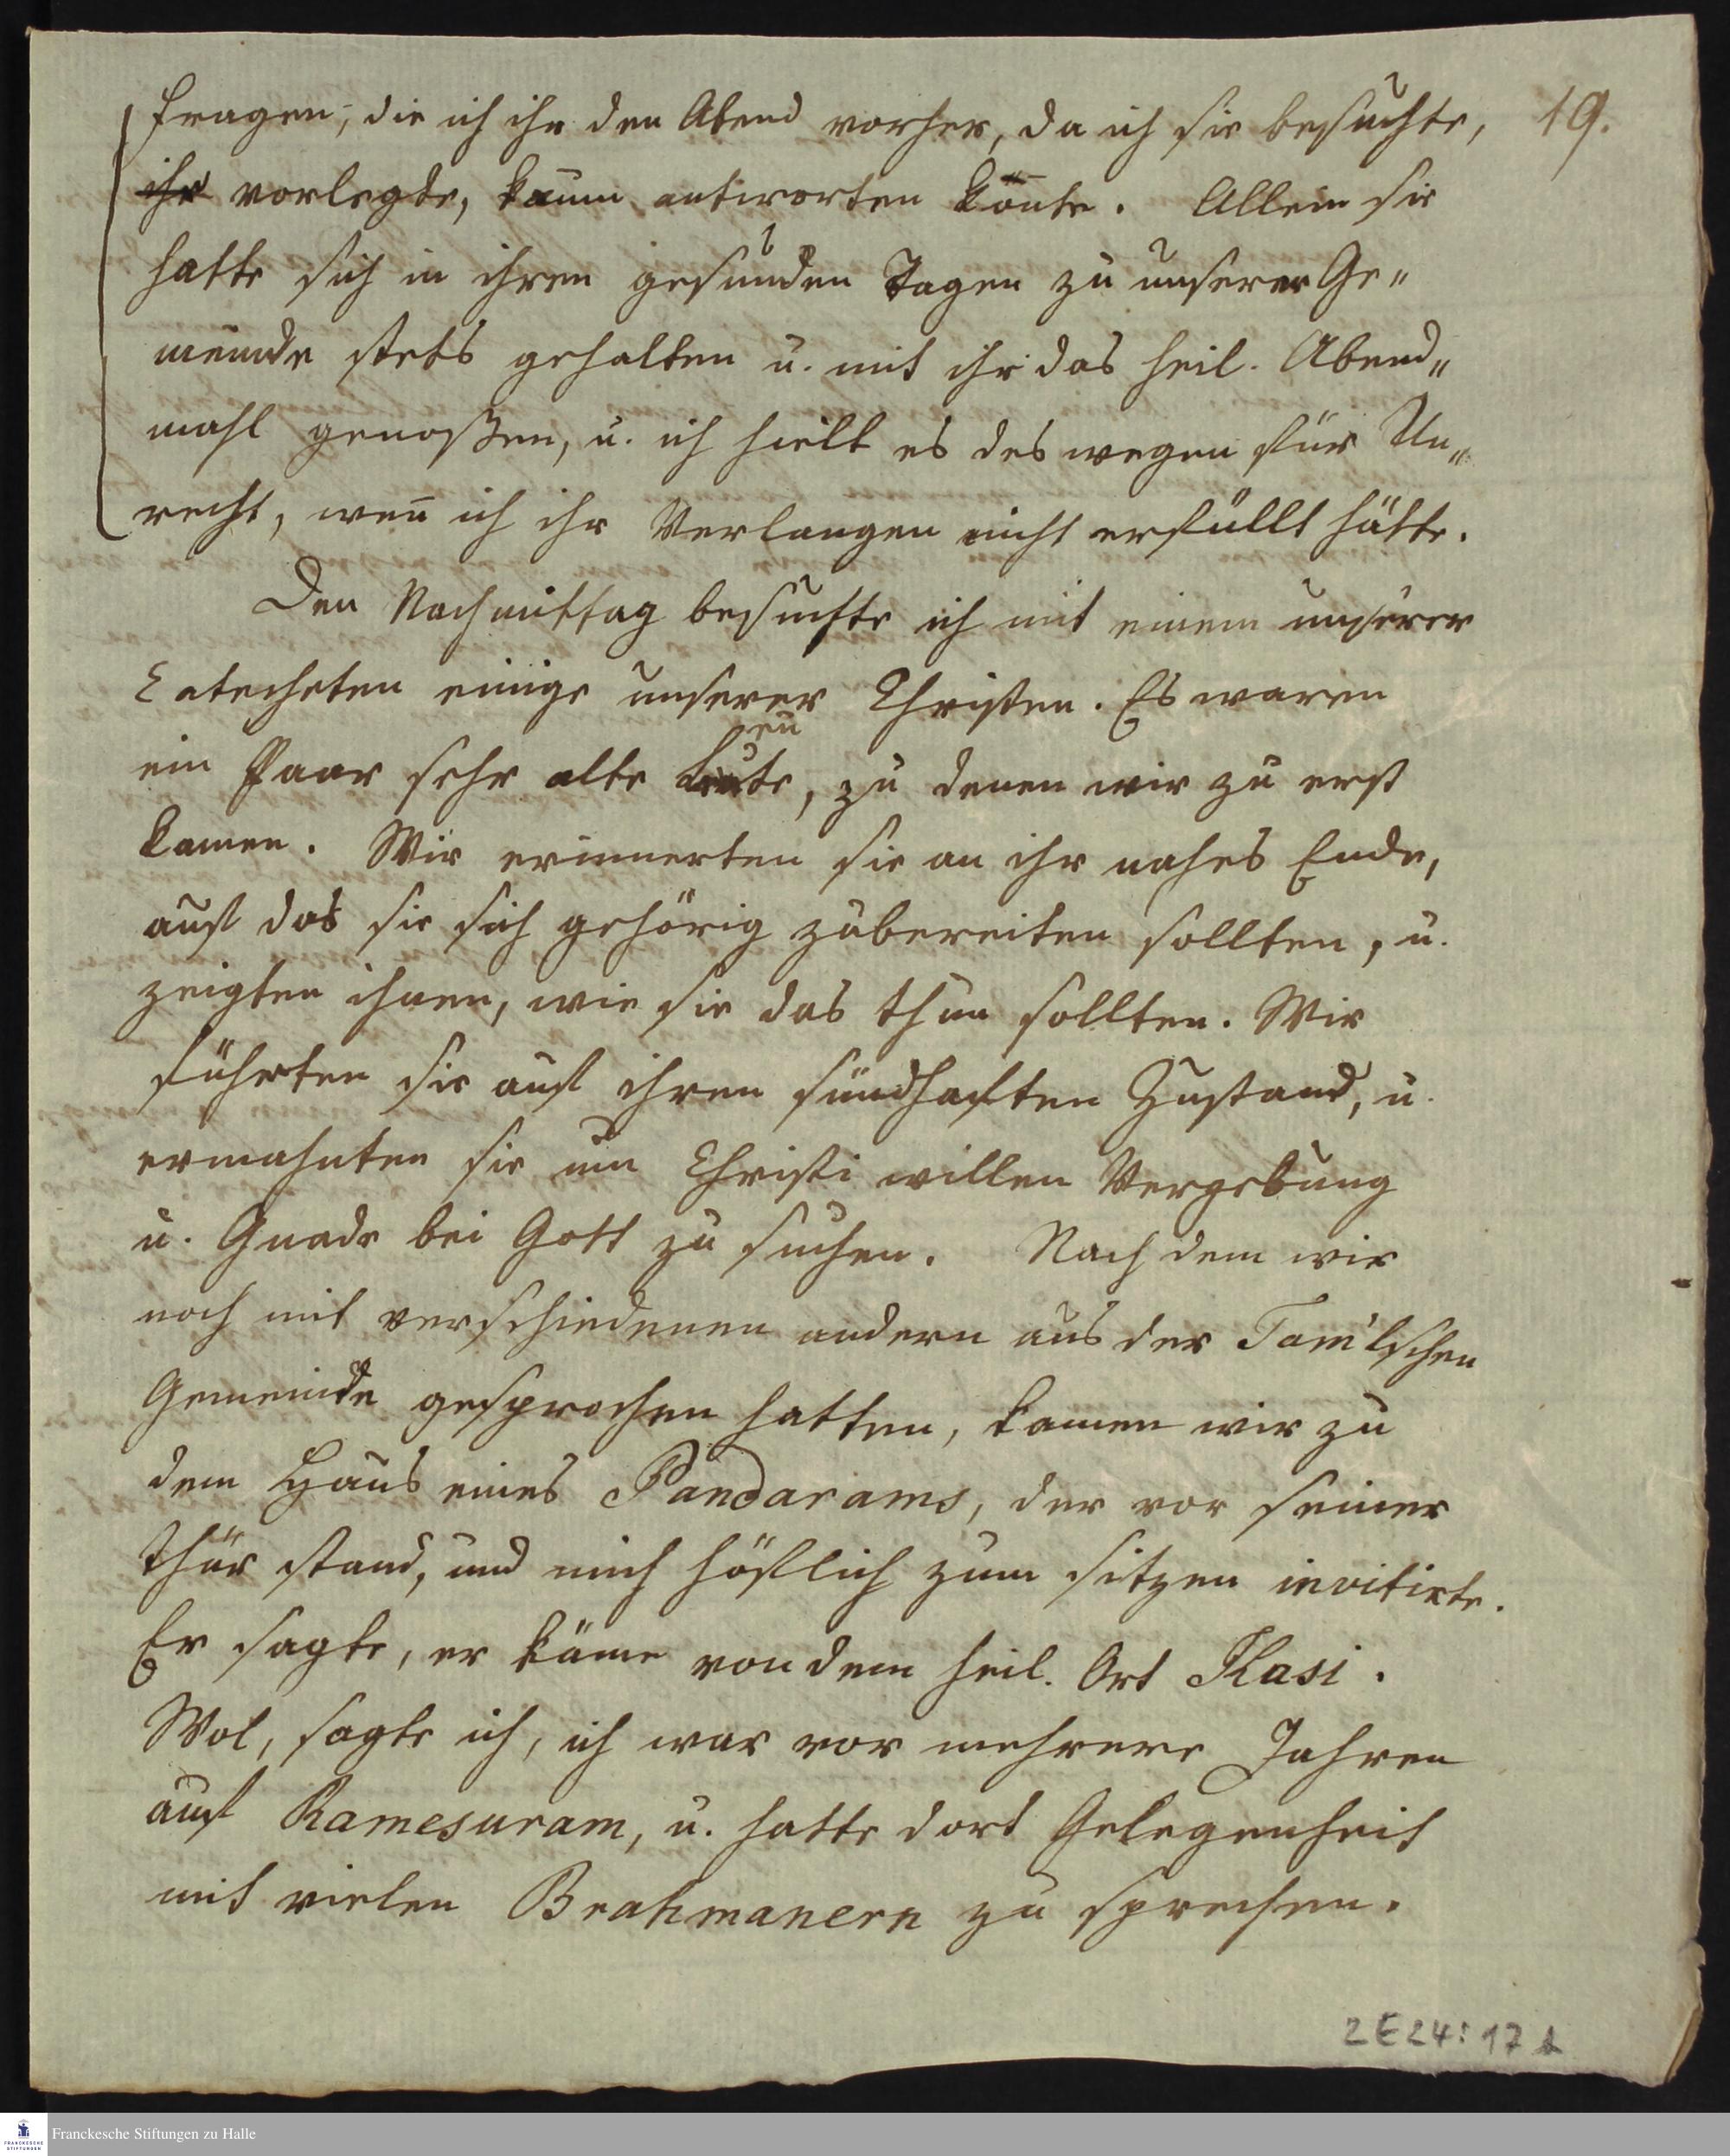 Fragen, die ich ihr den Abend vorher, da ich sie besuchte, 19.
ihr vorlegte, kaum antworten kon̄te. Allein sie
hatte sich in ihren gesunden Tagen zu unserer Ge„
meinde stets gehalten u. mit ihr das heil. Abend„
mahl genoßen, u. ich hielt es des wegen für Un„
recht, wen̄ ich ihr Verlangen nicht erfüllt hätte.
Den Nachmittag besuchte ich mit einem unserer
Catecheten einige unserer Christen. Es waren
ein Paar sehr alte Leute, zu denen wir zu erst
kamen. Wir erinnerten sie an ihr nahes Ende,
auf das sie sich gehörig zubereiten sollten, u.
zeigten ihnen, wie sie das thun sollten. Wir
führten sie auf ihren sündhaften Zustand, u.
ermahnten sie um Christi willen Vergebung
u. Gnade bei Gott zu suchen. Nach dem wir
noch mit verschiedenen andern aus der Tam'lschen
Gemeinde gesprochen hatten, kamen wir zu
dem Haus eines Pandarams, der vor seiner
Thür stand, und mich höflich zum sitzen invitirte.
Er sagte, er käme von dem heil. Ort Kasi.
Wol, sagte ich, ich war vor mehrere Jahren
auf Ramesuram, u. hatte dort Gelegenheit
mit vielen Brahmanern zu sprechen.
2 E 24: 17
Franckesche Stiftungen zu Halle
FRANCKESCHE
STIFTUNGEN